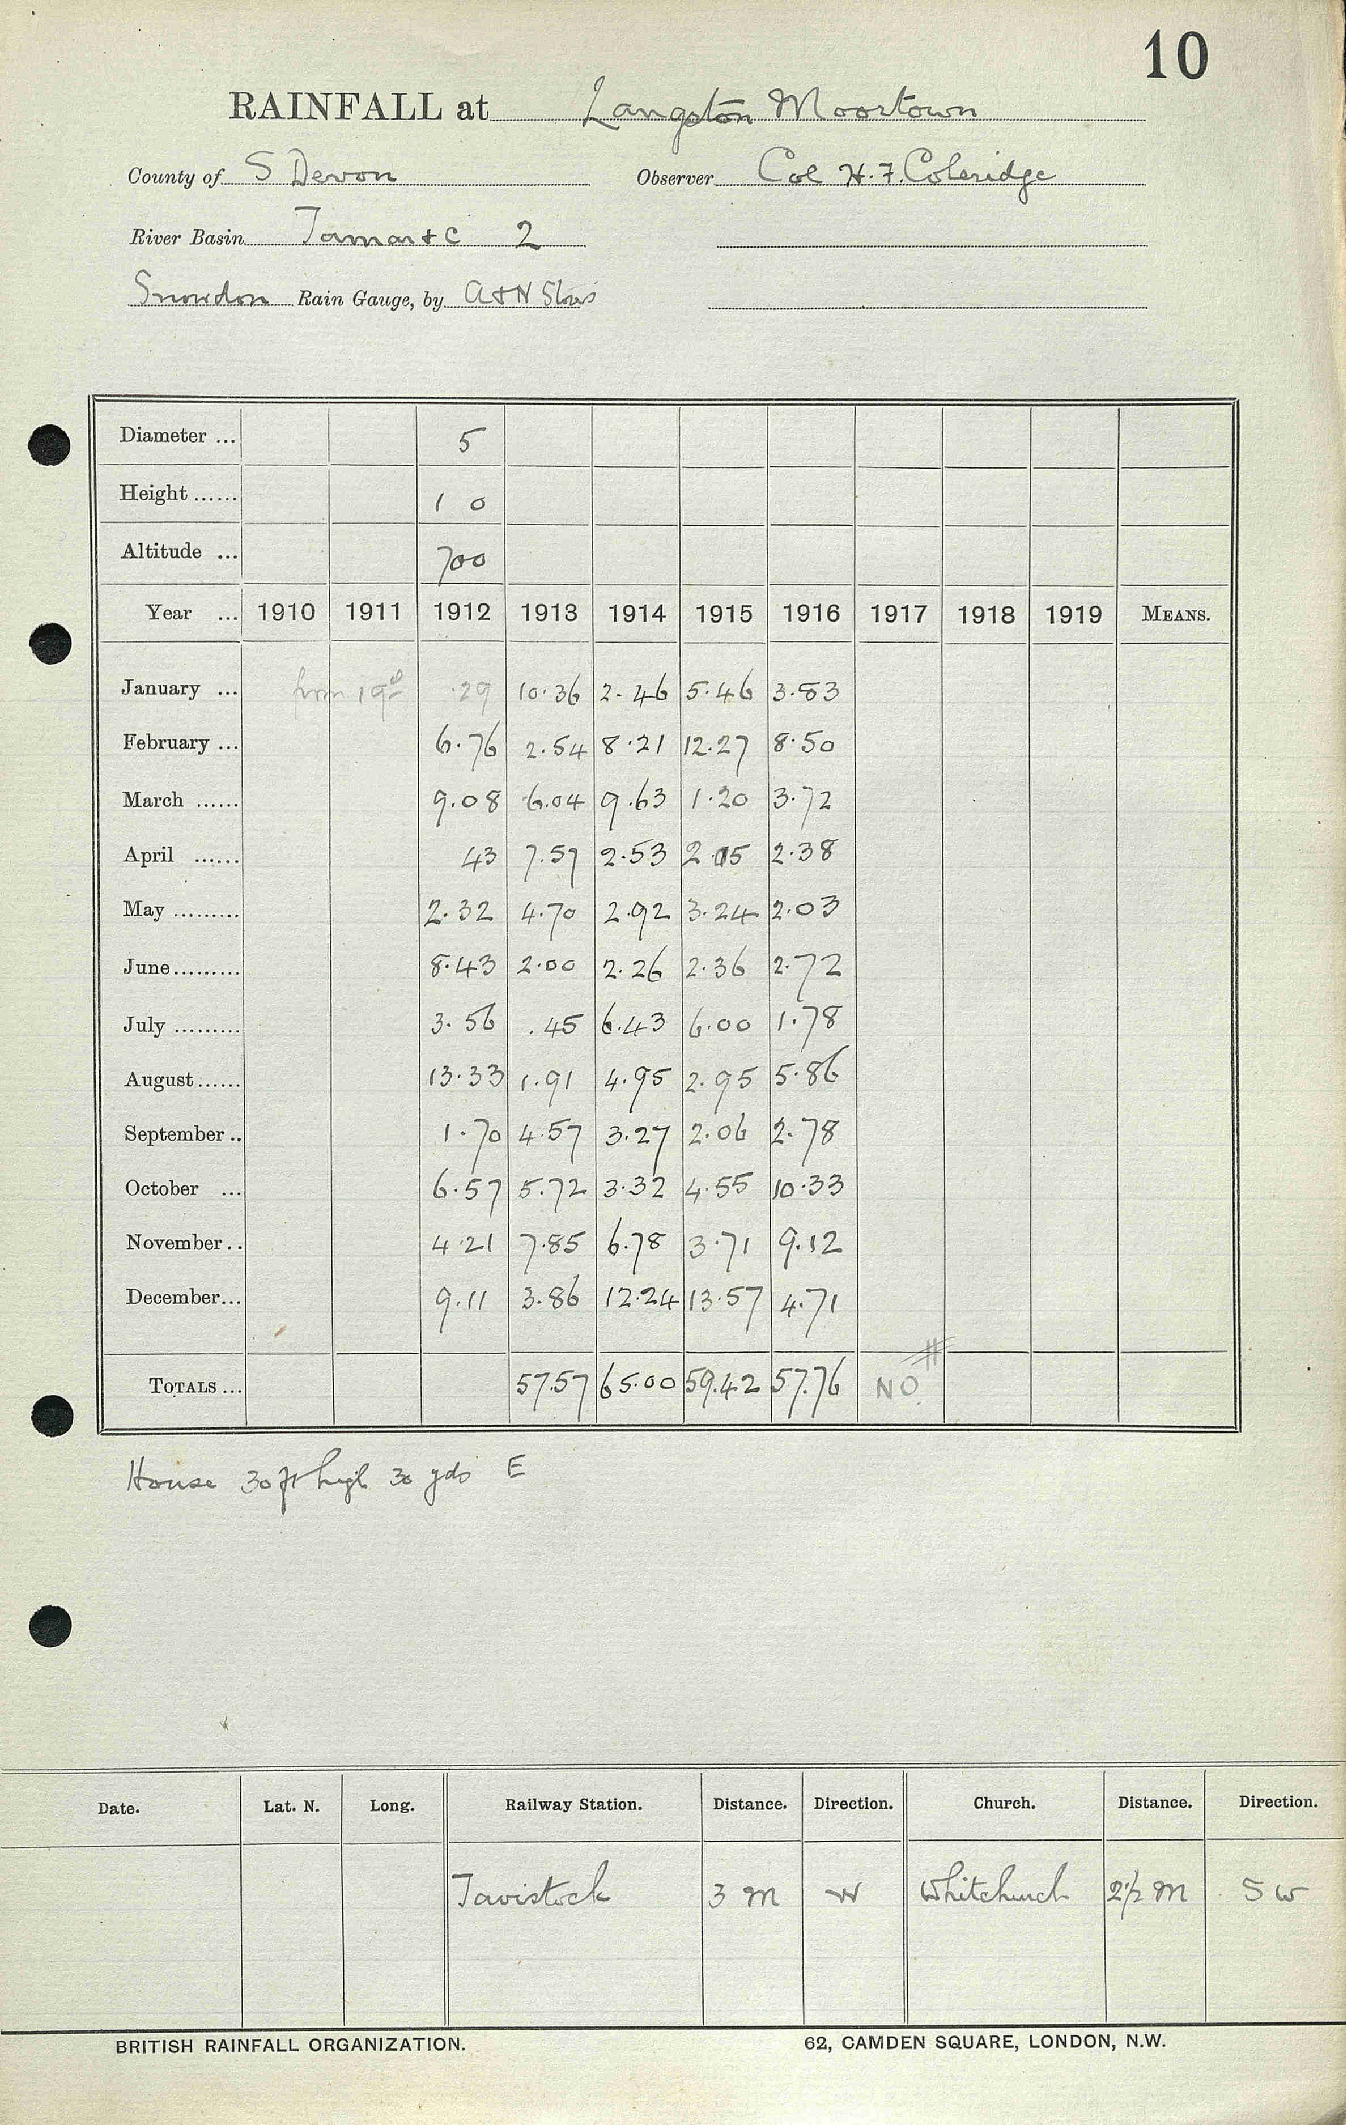 10
RAINFALL at Langston Moortown
County of S Devon Observer Col H.F. Coleridge
River Basin Tamar & C 2
Snowdon Rain Gauge, by A & N Stores
Diameter ... 5
Height ...... 1 0
Altitude ... 700
Year ... 1910 1911 1912 1913 1914 1915 1916 1917 1918 1919 MEANS.
January ... from 19th .29 10.36 2.46 5.46 3.83
February ... 6.76 2.54 8.21 12.27 8.50
March ...... 9.08 6.04 9.63 1.20 3.72
April ...... 43 7.57 2.53 2.05 2.38
May ......... 2.32 4.70 2.92 3.24 2.03
June ......... 8.43 2.00 2.26 2.36 2.72
July ......... 3.56 .45 6.43 6.00 1.78
August ...... 13.33 1.91 4.95 2.95 5.86
September .. 1.70 4.57 3.27 2.06 2.78
October ... 6.57 5.72 3.32 4.55 10.33
November .. 4.21 7.85 6.78 3.71 9.12
December ... 9.11 3.86 12.24 13.57 4.71
TOTALS ... 57.57 65.00 59.42 57.76 NO #
House 30 ft high 30 yds E
Date. Lat. N. Long. Railway Station. Distance. Direction. Church. Distance. Direction.
Tavistock 3 m W Whitchurch 2½ m S W
BRITISH RAINFALL ORGANIZATION. 62, CAMDEN SQUARE, LONDON, N.W.